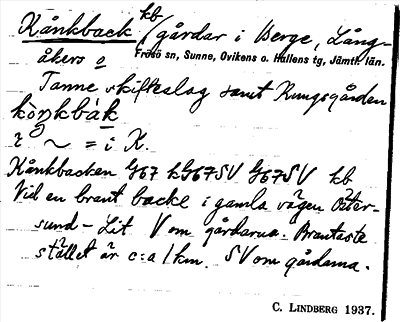 Kånkback kb / gårdar i Berge, Lång-
åkers o
Frösö sn, Sunne, Ovikens o. Hallens tg, Jämtl. län.
Tanne skifteslag samt Kungsgården
~ = i K.
Kånkbacken G67 kG67SV G67SV kb
Vid en brant backe i gamla vägen Öster-
sund - Lit V om gårdarna. Brantaste
stället är c:a 1 km. SV om gårdarna.
C. LINDBERG 1937.